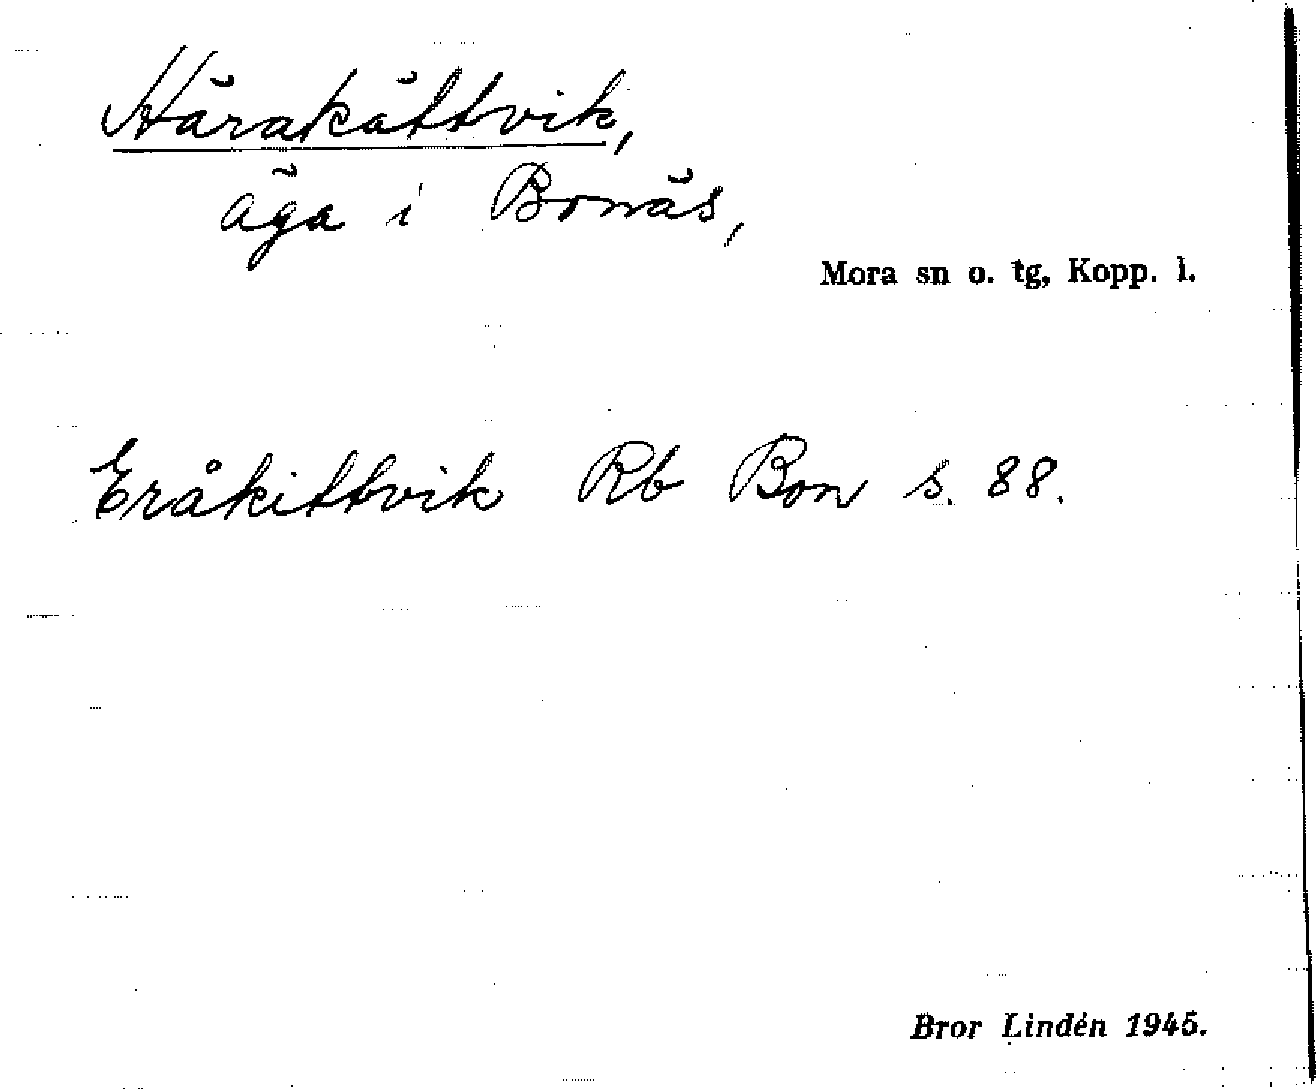 Härakättvik,
äga i Bonäs,
Mora sn o. tg, Kopp. l.
Eråkittvik Rb Bon s. 88.
Bror Lindén 1945.